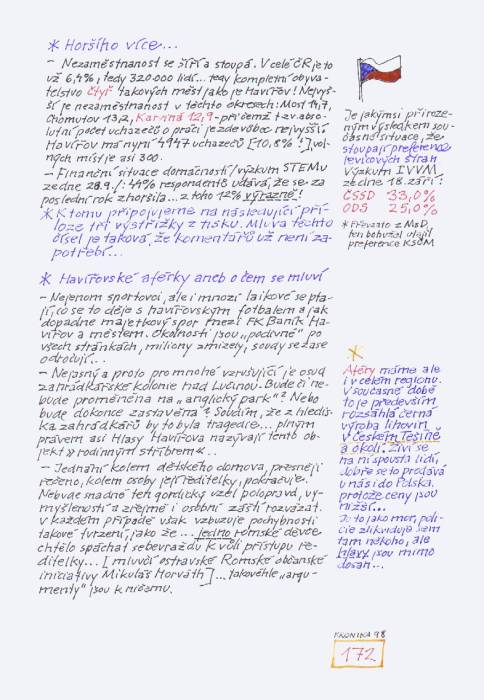 * Horšího více...
– Nezaměstnanost se šíří a stoupá. V celé ČR je to
už 6,4%, tedy 320 000 lidí... tedy kompletní obyva-
telstvo čtyř takových měst jako je Havířov! Nejvyš-
ší je nezaměstnanost v těchto okresech: Most 14,7,
Chomutov 13,2, Karviná 12,9 – přičemž tzv. abso-
lutní počet uchazečů o práci je zde vůbec nejvyšší.
Havířov má nyní 4947 uchazečů [10,8% !] vol-
ných míst je asi 300.
– Finanční situace domácností /výzkum STEMu
ze dne 28.9./: 49% respondentů udává, že se za
poslední rok zhoršila... z toho 12% výrazně!
* K tomu připojujeme na následující pří-
loze tři výstřižky z tisku. Mluva těchto
čísel je taková, že komentářů už není za-
potřebí...
* Havířovské aférky aneb o čem se mluví
– Nejenom sportovci, ale i mnozí laikové se pta-
jí, co se to děje s havířovským fotbalem a jak
dopadne majetkový spor mezi FK Baník Ha-
vířov a městem. Okolnosti jsou „podivné" po
všech stránkách, miliony zmizely, soudy se zase
odročují...
– Nejasný a proto pro mnohé vzrušující je osud
zahrádkářské kolonie nad Lučinou. Bude či ne-
bude proměněna na „anglický park"? Nebo
bude dokonce zastavěna? Soudím, že z hledis-
ka zahrádkářů by to byla tragedie... plným
právem asi Hlasy Havířova nazývají tento ob-
jekt » rodinným stříbrem « ..
– Jednání kolem dětského domova, přesněji
řečeno, kolem osoby její ředitelky, pokračuje.
Nebude snadné ten gordický uzel polopravd, vy-
myšleností a zřejmě i osobní zášti rozvázat.
V každém případě však vzbuzuje pochybnosti
takové tvrzení, jako že... jedno romské děvče
chtělo spáchat sebevraždu k vůli přístupu ře-
ditelky... [mluvčí ostravské Romské občanské
iniciativy Mikuláš Horváth]... takovéhle „argu-
menty" jsou k ničemu.
Je jakýmsi přiroze-
ným výsledkem sou-
časné situace, že
stoupají preference
levicových stran
Výzkum IVVM
ze dne 18. září:
ČSSD 33,0%
ODS 25,0%
* Převzato z MaD,
ten bohužel utajil
preference KSČM
*
Aféry máme ale
i v celém regionu.
V současné době
to je především
rozsáhlá černá
výroba lihovin
v Českém Těšíně
a okolí. Živí se
na ní spousta lidí,
dobře se to prodává
u nás i do Polska,
protože ceny jsou
nižší...
Je to jako mor, poli-
cie zlikviduje sem
tam někoho, ale
hlavy jsou mimo
dosah...
KRONIKA 98
172